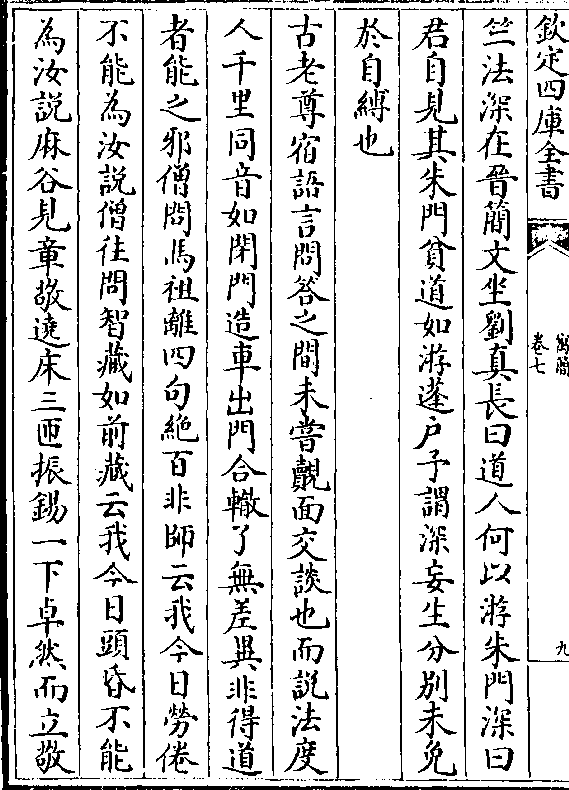 欽定四庫全書
寓簡
卷七
九
竺法深在晉簡文坐劉真長曰道人何以游朱門深曰
君自見其朱門貧道如游蓬户予謂深妄生分别未免
於自縛也
古老尊宿語言問答之間未嘗覿面交談也而説法度
人千里同音如閉門造車出門合轍了無差異非得道
者能之邪僧問馬祖離四句絶百非師云我今日勞倦
不能為汝説僧往問智藏如前藏云我今日頭昏不能
為汝説麻谷見章敬遶床三匝振錫一下卓然而立敬